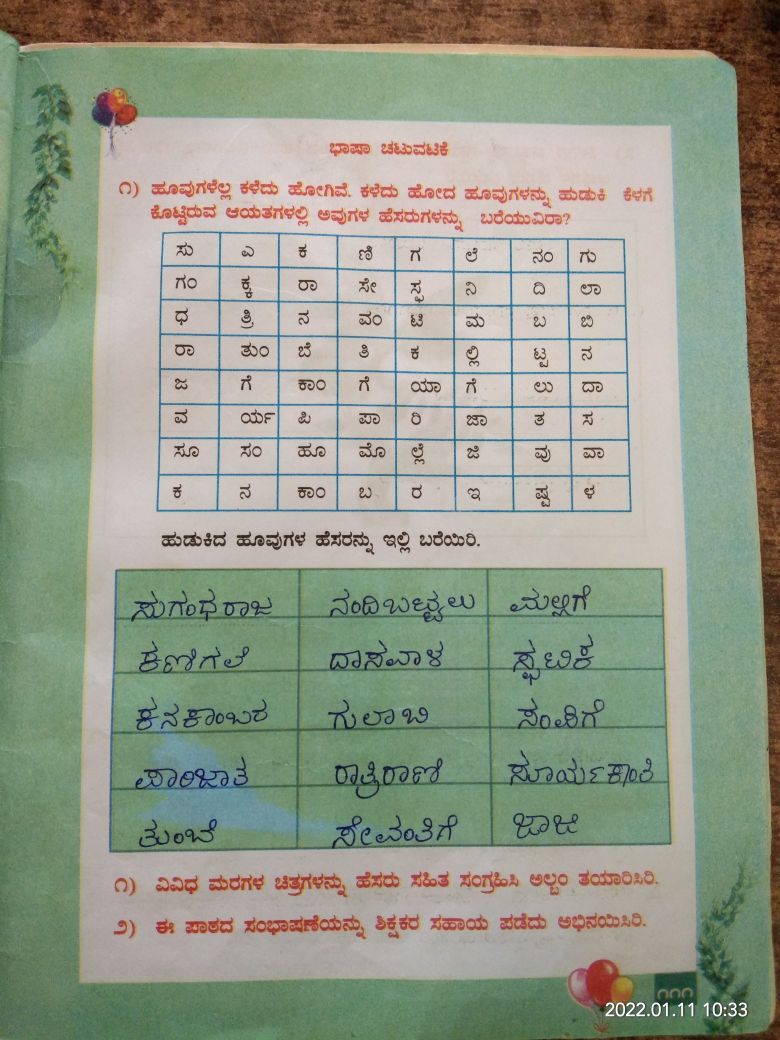 ಭಾಷಾ ಚಟುವಟಿಕೆ
೧) ಹೂವುಗಳೆಲ್ಲ ಕಳೆದು ಹೋಗಿವೆ. ಕಳೆದು ಹೋದ ಹೂವುಗಳನ್ನು ಹುಡುಕಿ ಕೆಳಗೆ
ಕೊಟ್ಟಿರುವ ಆಯತಗಳಲ್ಲಿ ಅವುಗಳ ಹೆಸರುಗಳನ್ನು ಬರೆಯುವಿರಾ?
ಸು ಎ ಕ ಣಿ ಗ ಲೆ ನಂ ಗು
ಗಂ ಕ್ಕ ರಾ ಸೇ ಸ್ಫ ನಿ ದಿ ಲಾ
ಧ ತ್ರಿ ನ ವಂ ಟಿ ಮ ಬ ಬಿ
ರಾ ತುಂ ಬೆ ತಿ ಕ ಲ್ಲಿ ಟ್ಟ ನ
ಜ ಗೆ ಕಾಂ ಗೆ ಯಾ ಗೆ ಲು ದಾ
ವ ರ್ಯ ಪಿ ಪಾ ರಿ ಜಾ ತ ಸ
ಸೂ ಸಂ ಹೂ ಮೊ ಲ್ಲೆ ಜಿ ವು ವಾ
ಕ ನ ಕಾಂ ಬ ರ ಇ ಷ್ಟ ಳ
ಹುಡುಕಿದ ಹೂವುಗಳ ಹೆಸರನ್ನು ಇಲ್ಲಿ ಬರೆಯಿರಿ.
ಸುಗಂಧರಾಜ ನಂದಿಬಟ್ಟಲು ಮಲ್ಲಿಗೆ
ಕಣಿಗಲೆ ದಾಸವಾಳ ಸ್ಫಟಿಕ
ಕನಕಾಂಬರ ಗುಲಾಬಿ ಸಂಪಿಗೆ
ಪಾರಿಜಾತ ರಾತ್ರಿರಾಣಿ ಸೂರ್ಯಕಾಂತಿ
ತುಂಬೆ ಸೇವಂತಿಗೆ ಜಾಜಿ
೧) ವಿವಿಧ ಮರಗಳ ಚಿತ್ರಗಳನ್ನು ಹೆಸರು ಸಹಿತ ಸಂಗ್ರಹಿಸಿ ಅಲ್ಬಂ ತಯಾರಿಸಿರಿ.
೨) ಈ ಪಾಠದ ಸಂಭಾಷಣೆಯನ್ನು ಶಿಕ್ಷಕರ ಸಹಾಯ ಪಡೆದು ಅಭಿನಯಿಸಿರಿ.
೧೧೧
2022.01.11 10:33